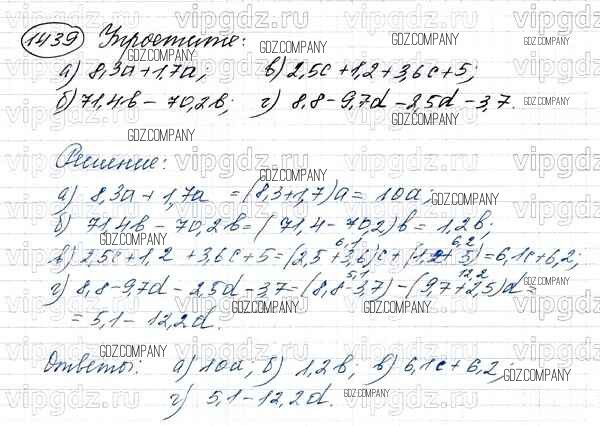 1439 Упростите:
а) 8,3a + 1,7a; в) 2,5c + 1,2 + 3,6c + 5;
б) 71,4b - 70,2b; г) 8,8 - 9,7d - 2,5d - 3,7.
Решение:
а) 8,3a + 1,7a = (8,3 + 1,7)a = 10a;
б) 71,4b - 70,2b = (71,4 - 70,2)b = 1,2b;
6,1 6,2
в) 2,5c + 1,2 + 3,6c + 5 = (2,5 + 3,6)c + (1,2 + 5) = 6,1c + 6,2;
5,1 12,2
г) 8,8 - 9,7d - 2,5d - 3,7 = (8,8 - 3,7) - (9,7 + 2,5)d =
= 5,1 - 12,2d.
Ответы: а) 10a, б) 1,2b, в) 6,1c + 6,2;
г) 5,1 - 12,2d.
GDZ.COMPANY
vipgdz.ru